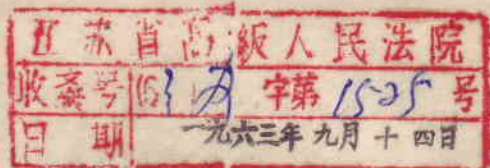 江苏省高级人民法院
收文号 (63) 办 字第 1525 号
日期 一九六三年九月十四日